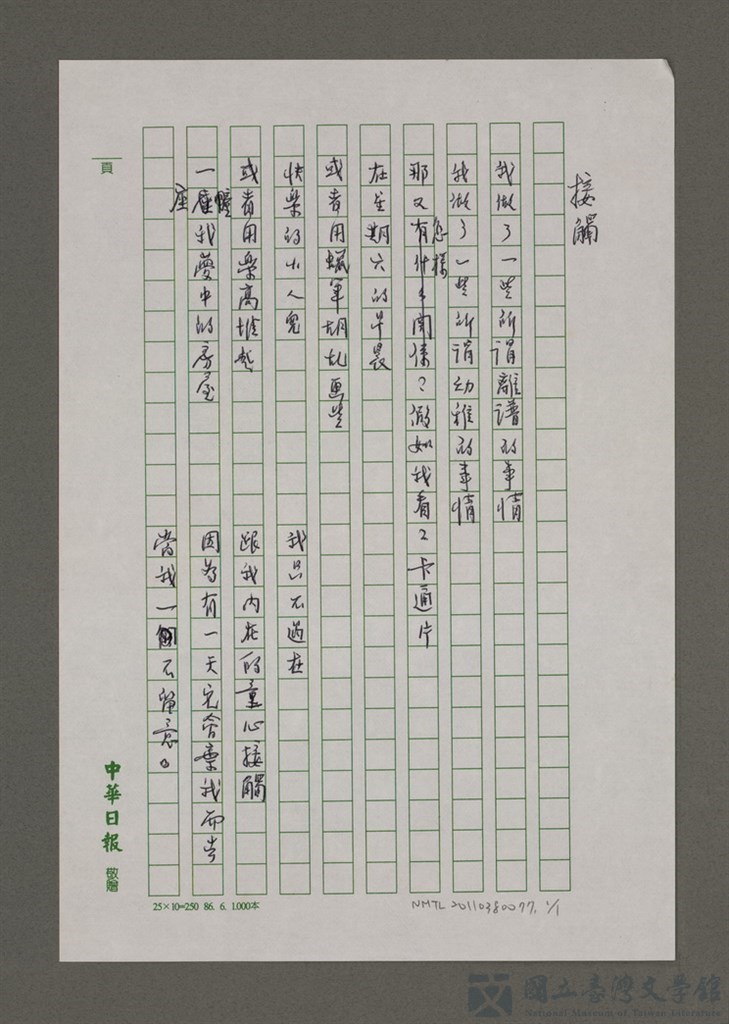 接觸
我做了一些所謂離譜的事情
我做了一些所謂幼稚的事情
那又有什么關係？假如我看了卡通片
怎樣
在星期六的早晨
或者用蠟筆胡亂畫些
快樂的小人兒
我只不過在
或者用樂高堆起
跟我內在的童心接觸
一座我夢中的房屋
幢
座
因為有一天它會棄我而去
當我一個不留意。
頁
中華日報 敬贈
25×10=250 86. 6. 1.000本
NMTL 20110380077. 1/1
國立臺灣文學館
National Museum of Taiwan Literature